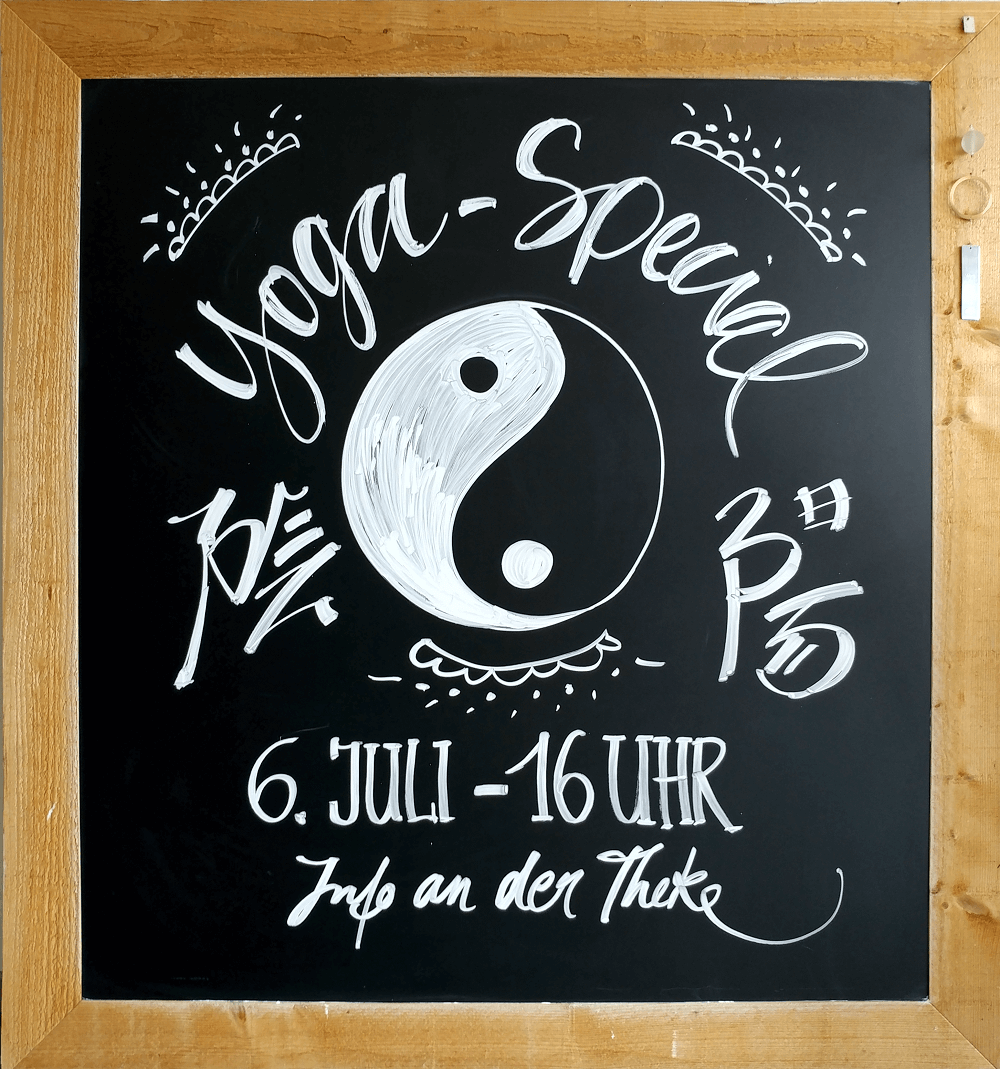 Yoga-Special
陰 陽
6. JULI - 16 UHR
Info an der Theke